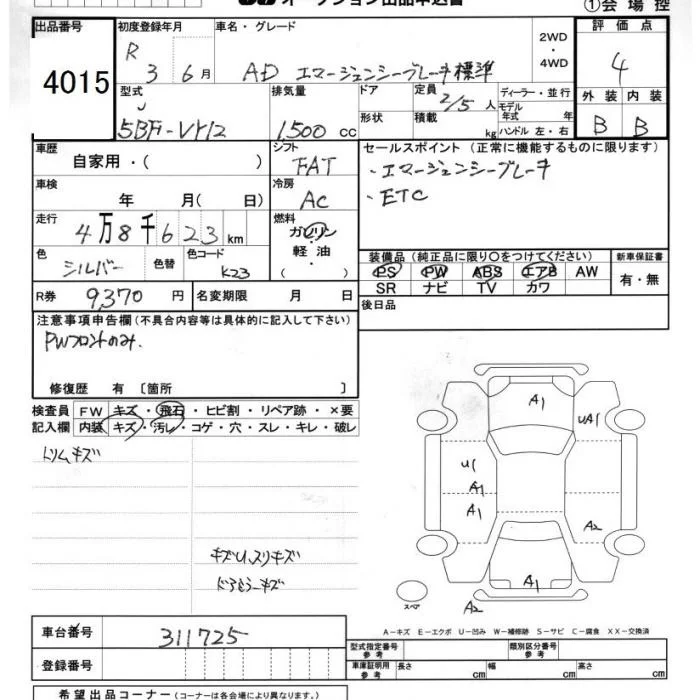 オークション出品申込書 ①会場控
出品番号 初度登録年月 車名・グレード 2WD・4WD 評価点
4015 R 3 6月 AD エマージェンシーブレーキ標準 4
型式 排気量 ドア 定員 2/5 人 ディーラー・並行 外装 内装
5BF-VY12 1,500 cc 形状 積載 kg モデル年式 年 ハンドル 左・右 B B
車歴 シフト セールスポイント (正常に機能するものに限ります)
自家用・( ) FAT ・エマージェンシーブレーキ
車検 冷房 ・ETC
年 月( 日) AC
走行 燃料
4万8千623km ガソリン
色 色替 色コード 軽油 装備品 (純正品に限り○をつけてください) 新車保証書
シルバー K23 ・( ) PS PW ABS エアB AW 有・無
SR ナビ TV カワ
R券 9,370円 名変期限 月 日 後日品
注意事項申告欄 (不具合内容等は具体的に記入して下さい)
PWフロントのみ.
修復歴 有 〔箇所 〕
検査員 FW キズ・飛石・ヒビ割・リペア跡・×要
記入欄 内装 キズ・汚レ・コゲ・穴・スレ・キレ・破レ
トリムキズ
A1
UA1
U1
A1
A1
A2
キズU、スリキズ
A1
スペア A2
A-キズ E-エクボ U-凹み W-補修跡 S-サビ C-腐食 XX-交換済
車台番号 311725
型式指定番号 参考 類別区分番号 参考
登録番号 車庫証明用 参考 長さ cm 幅 cm 高さ cm
希望出品コーナー (コーナーは各会場により異なります。)